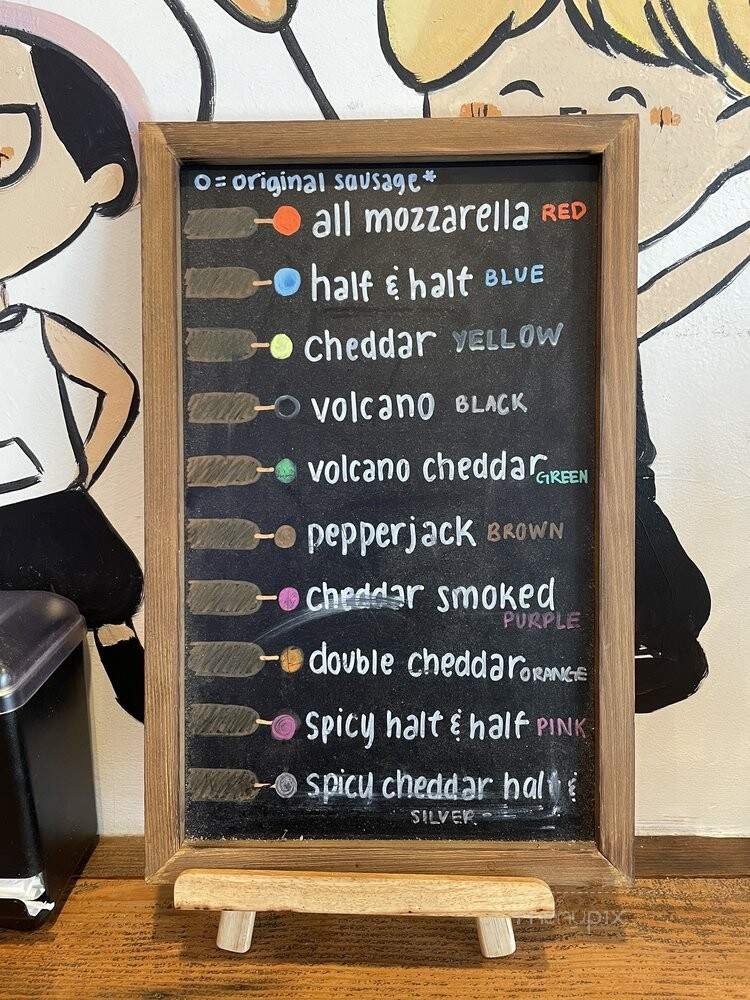 O = original sausage*
all mozzarella RED
half & half BLUE
cheddar YELLOW
volcano BLACK
volcano cheddar GREEN
pepperjack BROWN
cheddar smoked
PURPLE
double cheddar ORANGE
spicy half & half PINK
spicy cheddar half &
SILVER
menupix